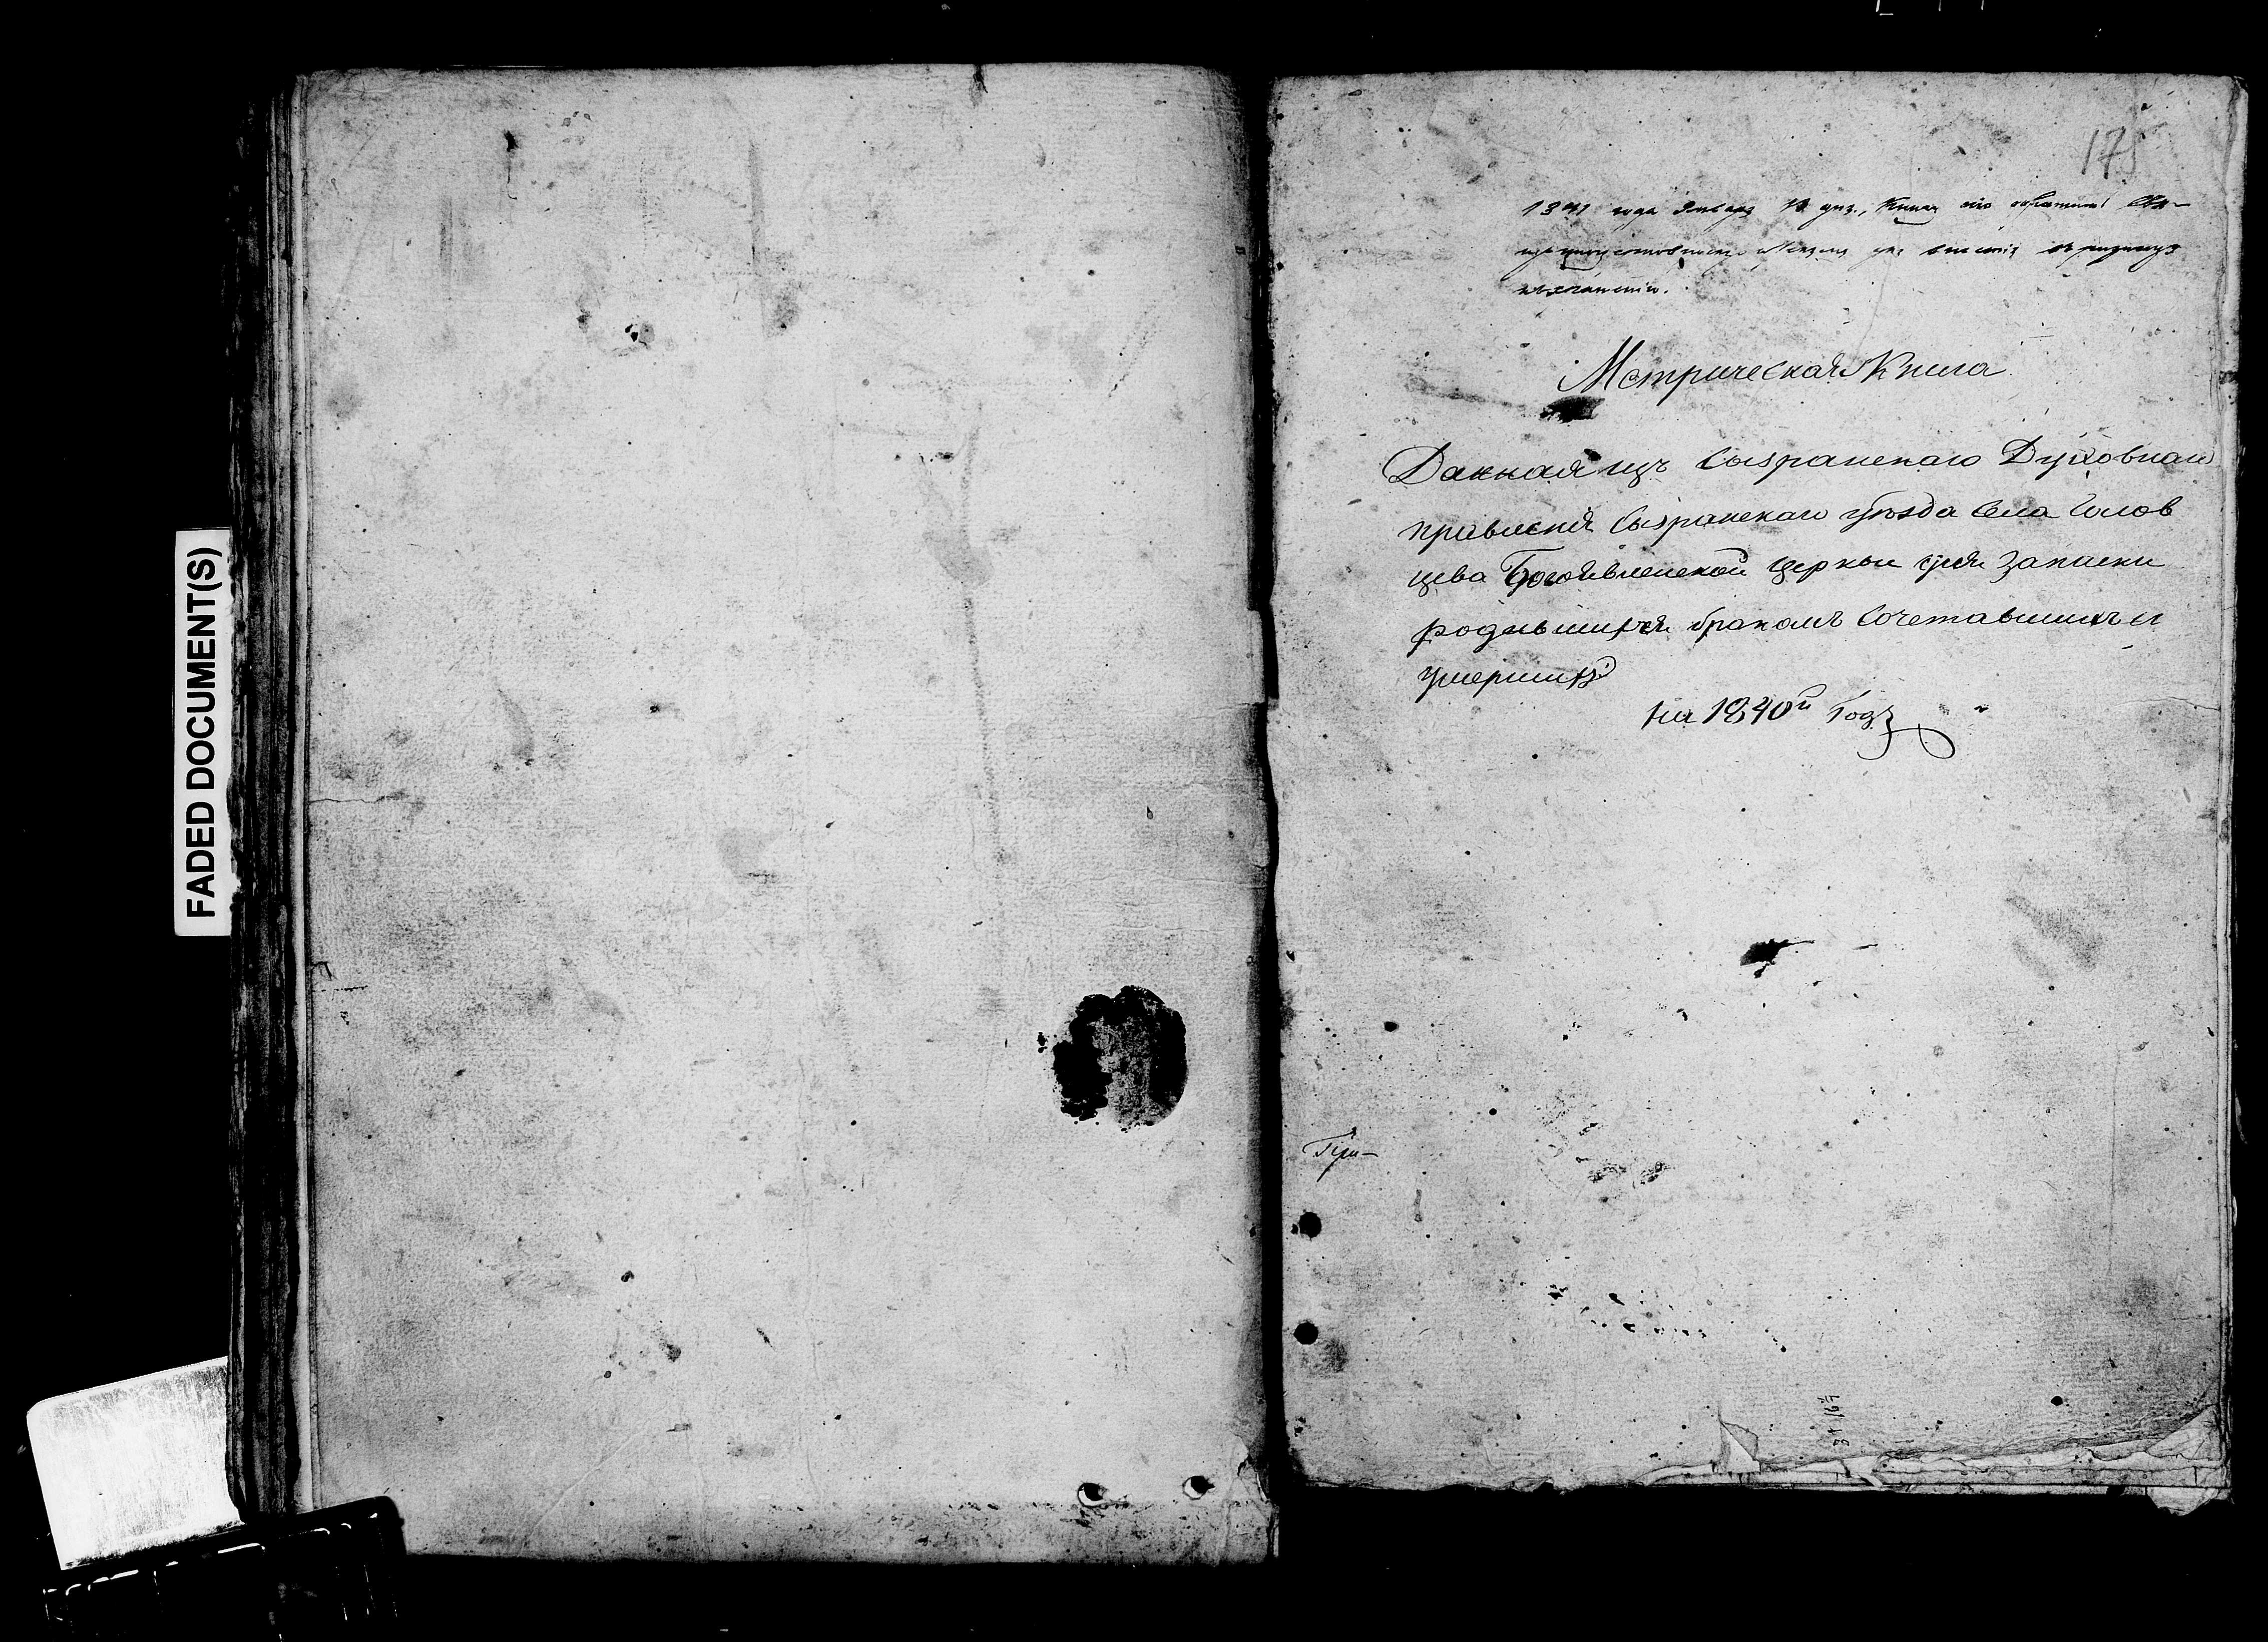 FADED DOCUMENT(S)
175
1841 года Января дня, Книга сію обратить
для внесенія въ ризницу
къ храненію.
Метрическая Книга
Данная изъ Сызранскаго Духовнаго
правленія Сызранскаго уѣзда села Голов
цева Богоявленской церкви для записки
родившихся бракомъ сочетавшихъ и
умершихъ
на 1840й Годъ
При-